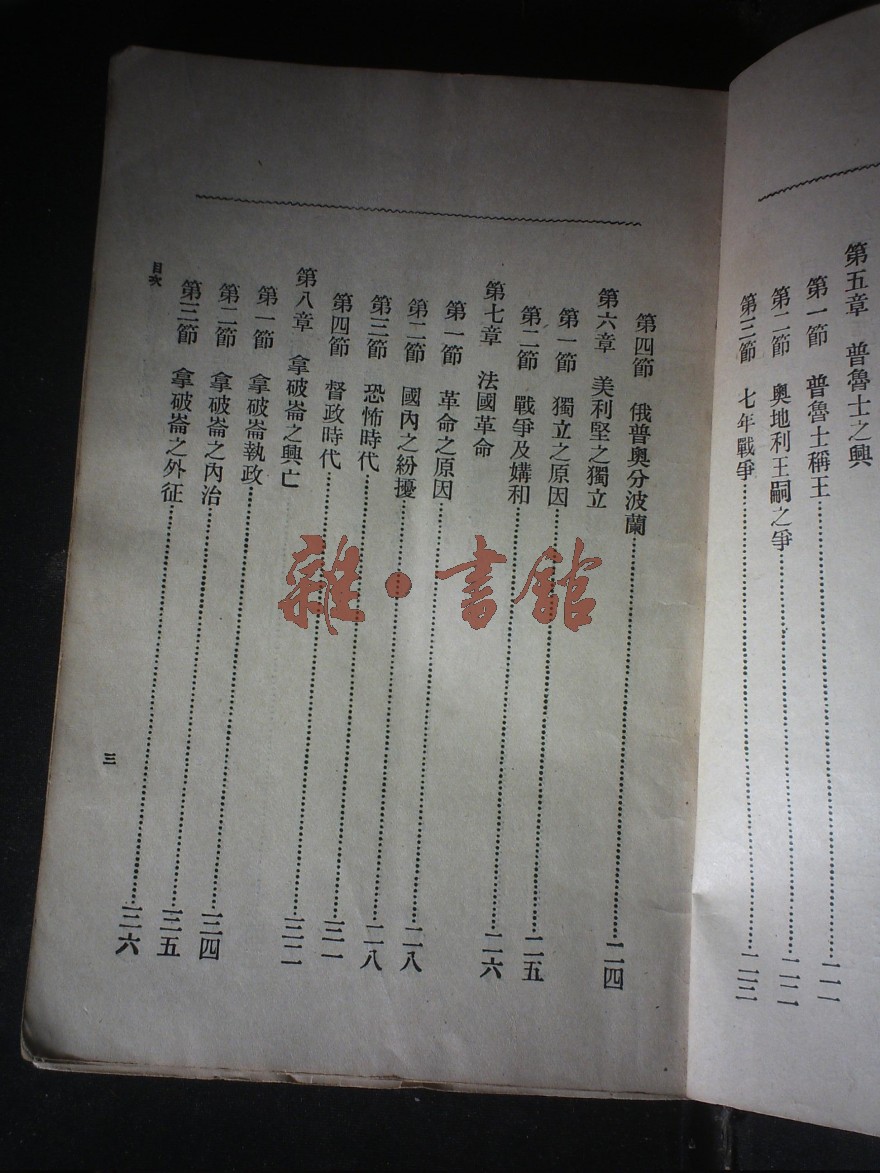 第五章 普魯士之興
第一節 普魯士稱王……二一
第二節 奧地利王嗣之爭……二二
第三節 七年戰爭……二三
第四節 俄普奧分波蘭……二四
第六章 美利堅之獨立
第一節 獨立之原因……二五
第二節 戰爭及媾和……二六
第七章 法國革命
第一節 革命之原因……二八
第二節 國內之紛擾……二八
第三節 恐怖時代……三一
第四節 督政時代……三二
第八章 拿破崙之興亡
第一節 拿破崙執政……三四
第二節 拿破崙之內治……三五
第三節 拿破崙之外征……三六
目次
三
雜·書館